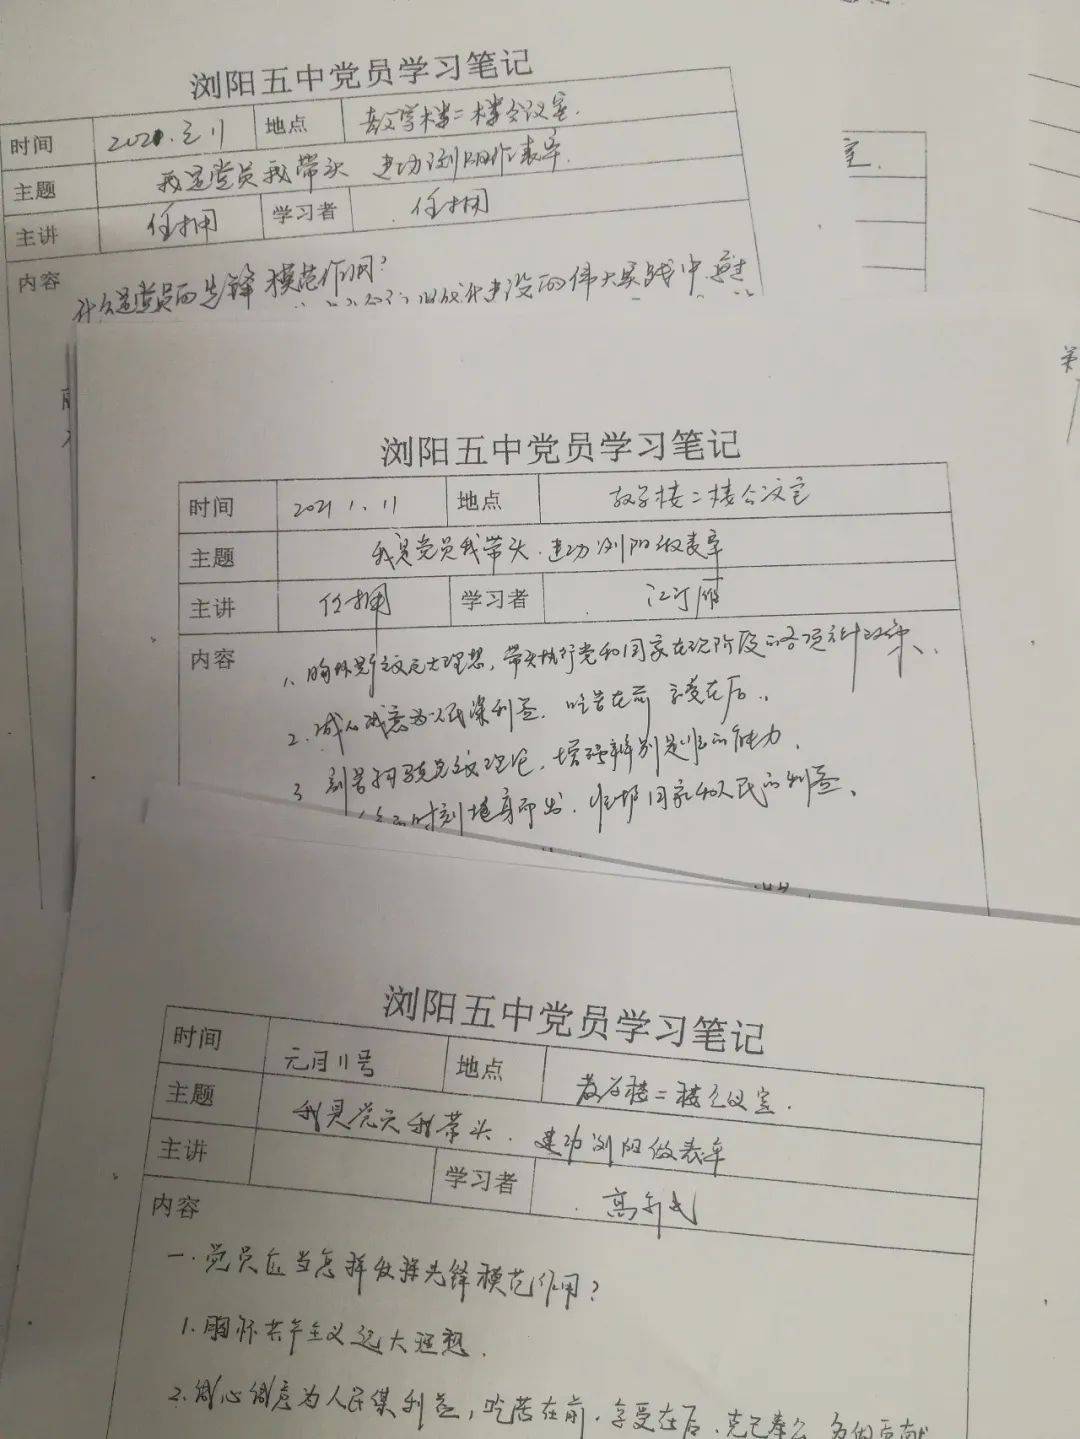 浏阳五中党员学习笔记
时间 2021.元11 地点 教学楼二楼会议室.
主题 我是党员我带头 建功浏阳作表率.
主讲 任拥 学习者 任拥
内容
什么是党员的先锋模范作用?
建设的伟大实践中
室.
浏阳五中党员学习笔记
时间 2021 1.11 地点 教学楼二楼会议室
主题 我是党员我带头.建功浏阳做表率
主讲 任拥 学习者 江订雁
内容 1、胸怀共产主义远大理想,带头执行党和国家在现阶段的各项方针政策、
2.诚心诚意为人民谋利益.吃苦在前 享受在后.
3 刻苦学习马克思主义理论,增强辨别是非的能力.
时刻挺身而出.维护国家和人民的利益、
浏阳五中党员学习笔记
时间 元月11号 地点 教学楼二楼会议室.
主题 我是党员我带头.建功浏阳做表率
主讲 学习者 高新民
内容
一.党员应当怎样发挥先锋模范作用?
1.胸怀共产主义远大理想.
2.诚心诚意为人民谋利益,吃苦在前.享受在后.克己奉公 多做贡献